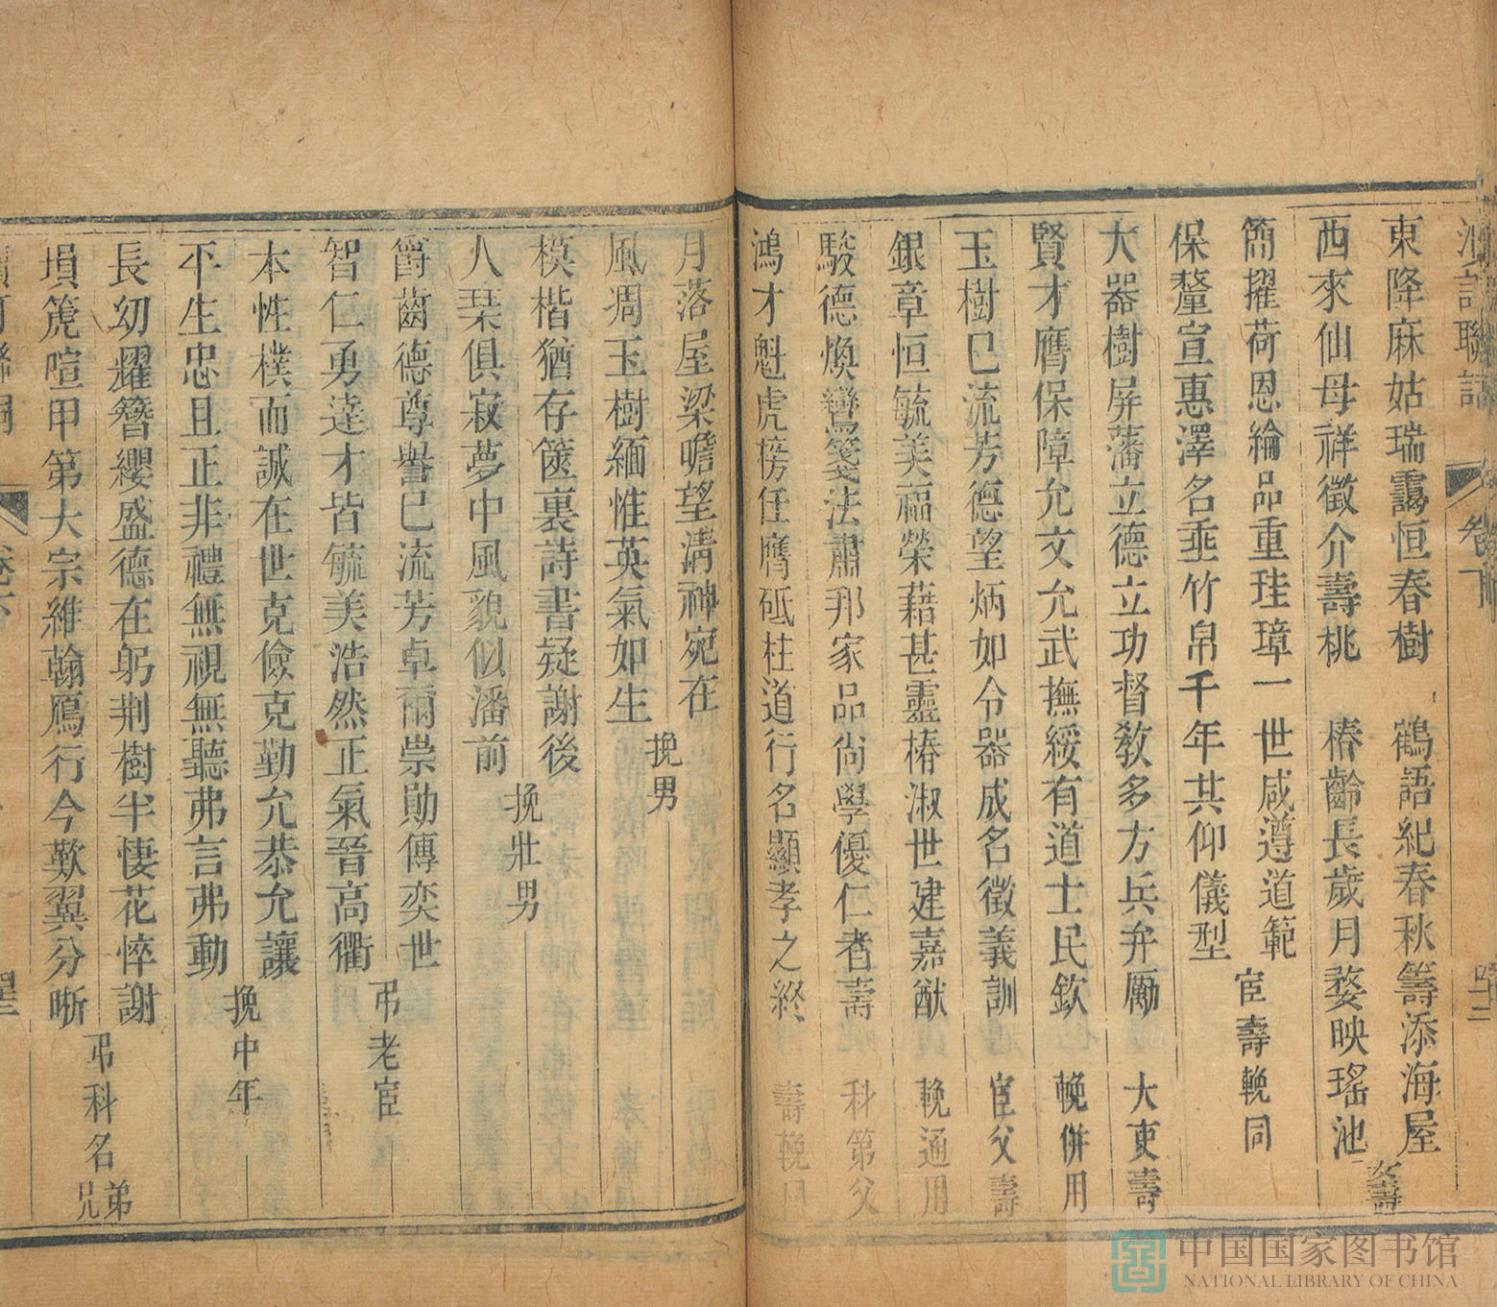 東降麻姑瑞靄恒春樹　鶴語紀春秋籌添海屋
西來仙母祥徵介壽桃　椿齡長歲月婺映瑤池　女壽
簡擢荷恩綸品重珪璋一世咸遵道範
保釐宣惠澤名垂竹帛千年共仰儀型　宦壽輓同
大器樹屏藩立德立功督敎多方兵弁勵　大吏壽
賢才膺保障允文允武撫綏有道士民欽　輓併用
玉樹已流芳德望炳如令器成名徵義訓　宦父壽
銀章恒毓美福榮藉甚靈椿淑世建嘉猷　輓通用
駿德煥鸞箋法肅那家品尙學優仁者壽　科第父
鴻才魁虎榜任膺砥柱道行名顯孝之終　壽輓用
卷下
四十二
月落屋梁瞻望淸神宛在
風凋玉樹緬惟英氣如生　挽男
模楷猶存篋裏詩書疑謝後
人琹俱寂夢中風貌似潘前　挽壯男
爵齒德尊譽已流芳卓爾崇勛傳奕世
智仁勇達才皆毓美浩然正氣晉高衢　弔老宦
本性樸而誠在世克儉克勤允恭允讓
平生忠且正非禮無視無聽弗言弗動　挽中年
長幼耀簪纓盛德在躬荆樹半悽花悴謝
塤箎喧甲第大宗維翰鴈行今歎翼分晰　弔科名兄弟
卷下
中国国家图书馆
NATIONAL LIBRARY OF CHINA